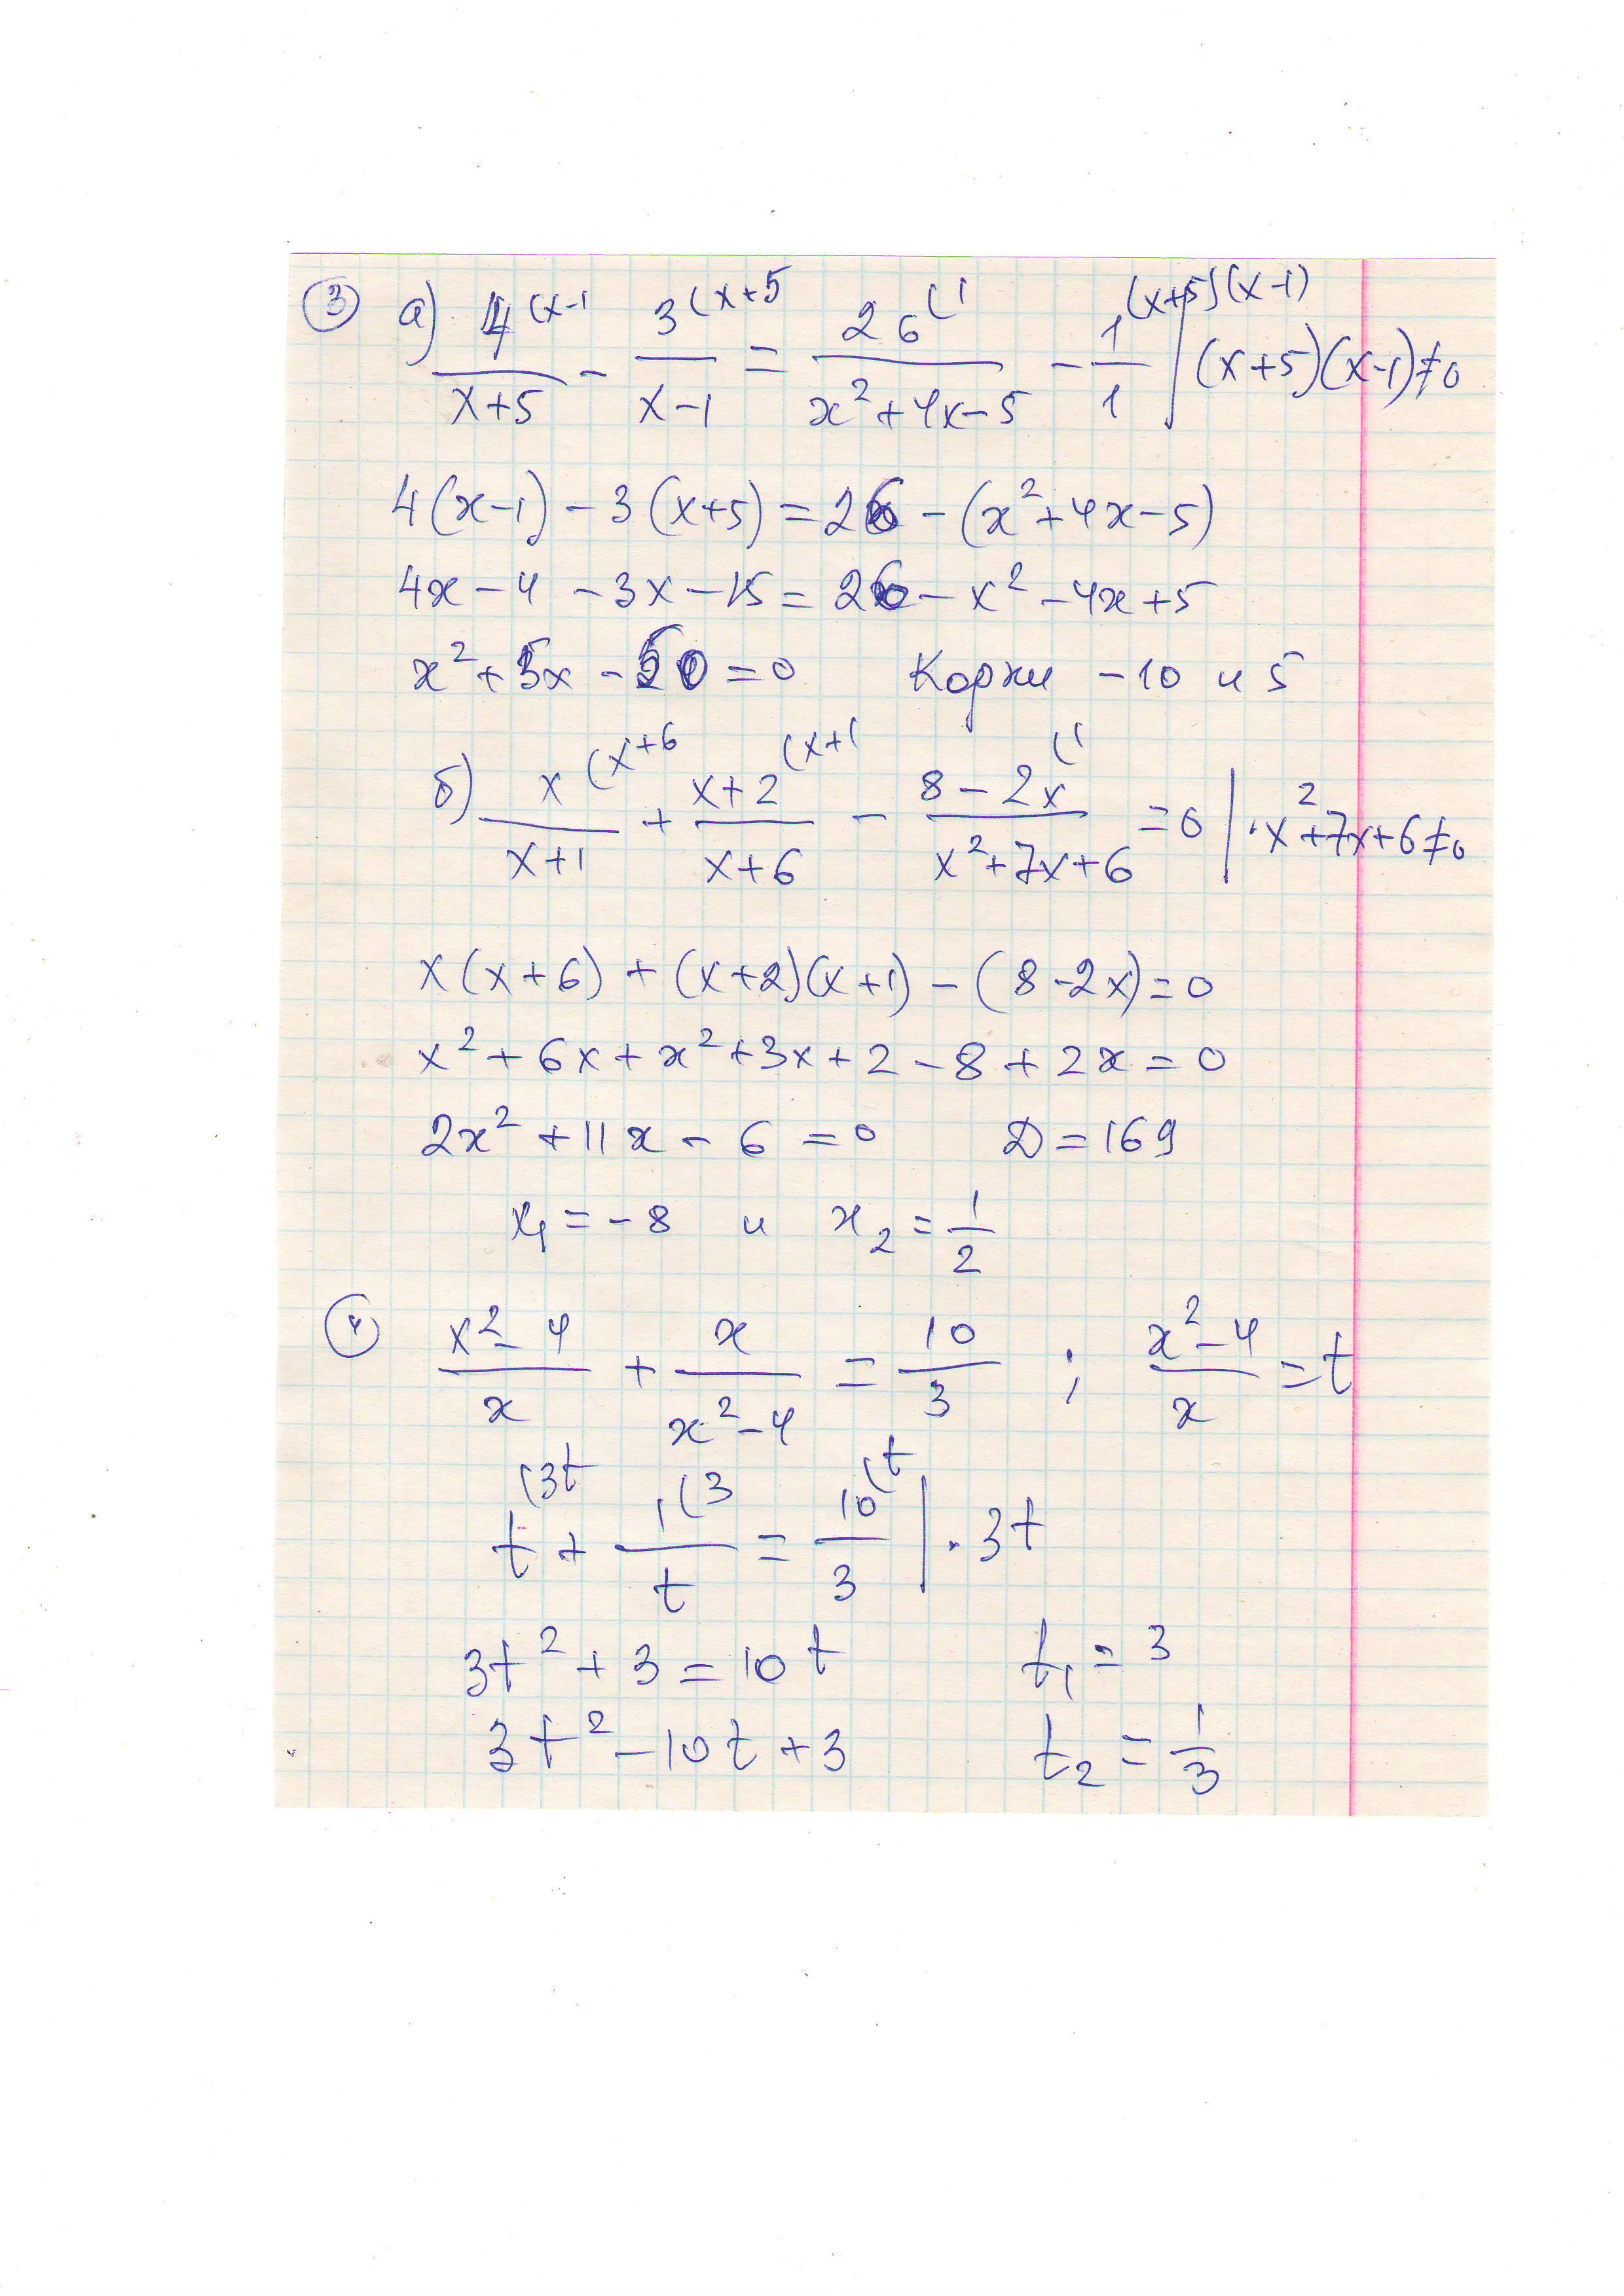 ③ а) 4(x-1 / x+5 - 3(x+5 / x-1 = 26(1 / x²+4x-5 - 1(x+5)(x-1) / 1 | (x+5)(x-1)≠0
4(x-1) - 3(x+5) = 26 - (x²+4x-5)
4x - 4 - 3x - 15 = 26 - x² - 4x + 5
x² + 5x - 50 = 0 Корни -10 и 5
б) x(x+6 / x+1 + x+2(x+1 / x+6 - 8-2x(1 / x²+7x+6 = 0 | · x²+7x+6≠0
x(x+6) + (x+2)(x+1) - (8-2x) = 0
x² + 6x + x² + 3x + 2 - 8 + 2x = 0
2x² + 11x - 6 = 0 D = 169
x₁ = -8 и x₂ = 1/2
④ x²-4 / x + x / x²-4 = 10/3 ; x²-4 / x = t
t(3t + 1(3 / t = 10(t / 3 | · 3t
3t² + 3 = 10t t₁ = 3
3t² - 10t + 3 t₂ = 1/3